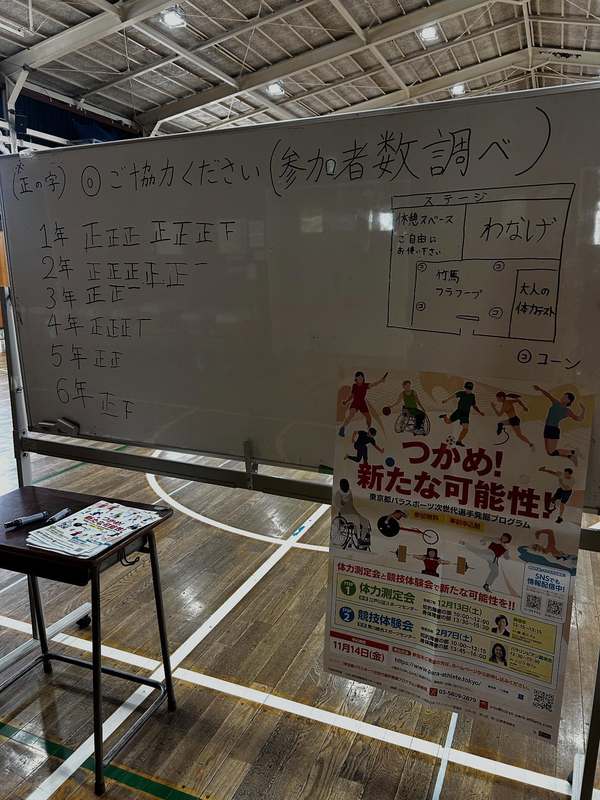 (正の字) ◎ ご協力ください (参加者数調べ)
1年 正正正 正正正下
2年 正正正正正一
3年 正正一
4年 正正正丅
5年 正正
6年 正下
ステージ
休憩スペース
ご自由に
お使い下さい
わなげ
竹馬
フラフープ
大人の
体力テスト
コ コ
コ コ
コ コーン
つかめ!
新たな可能性!
東京都パラスポーツ次世代選手発掘プログラム
参加無料 事前申込制
体力測定会と競技体験会で新たな可能性を!!
SNSでも
情報配信中!
1 体力測定会
12月13日(土)
2 競技体験会
2月7日(土)
11月14日(金)
https://www.para-athlete.tokyo/
03-5819-2879